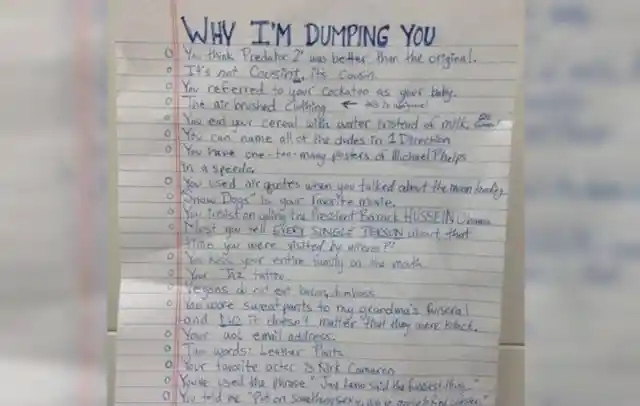 WHY I'M DUMPING YOU
You think Predator 2 was better than the original.
It's not Cousint, it's Cousin.
You referred to your cockatoo as your baby.
The air brushed clothing ← this is
You eat your cereal with water instead of milk.
You can name all of the dudes in 1 Direction
You have one-too-many posters of Michael Phelps
in a speedo.
You used air quotes when you talked about the moon landing
"Snow Dogs" is your favorite movie.
You insist on calling the President Barack HUSSEIN Obama
Must you tell EVERY SINGLE PERSON about that
time you were visited by
You kiss your entire family on the mouth
Your Taz tattoo.
Vegans do not eat bacon, dumbass
You wore sweatpants to my grandma's funeral
and NO it doesn't matter that they were black.
Your aol email address.
Two words: Leather Pants
Your favorite actor is Kirk Cameron
You've used the phrase, "Jay Leno said the funniest thing."
You told me "Put on something sexy,